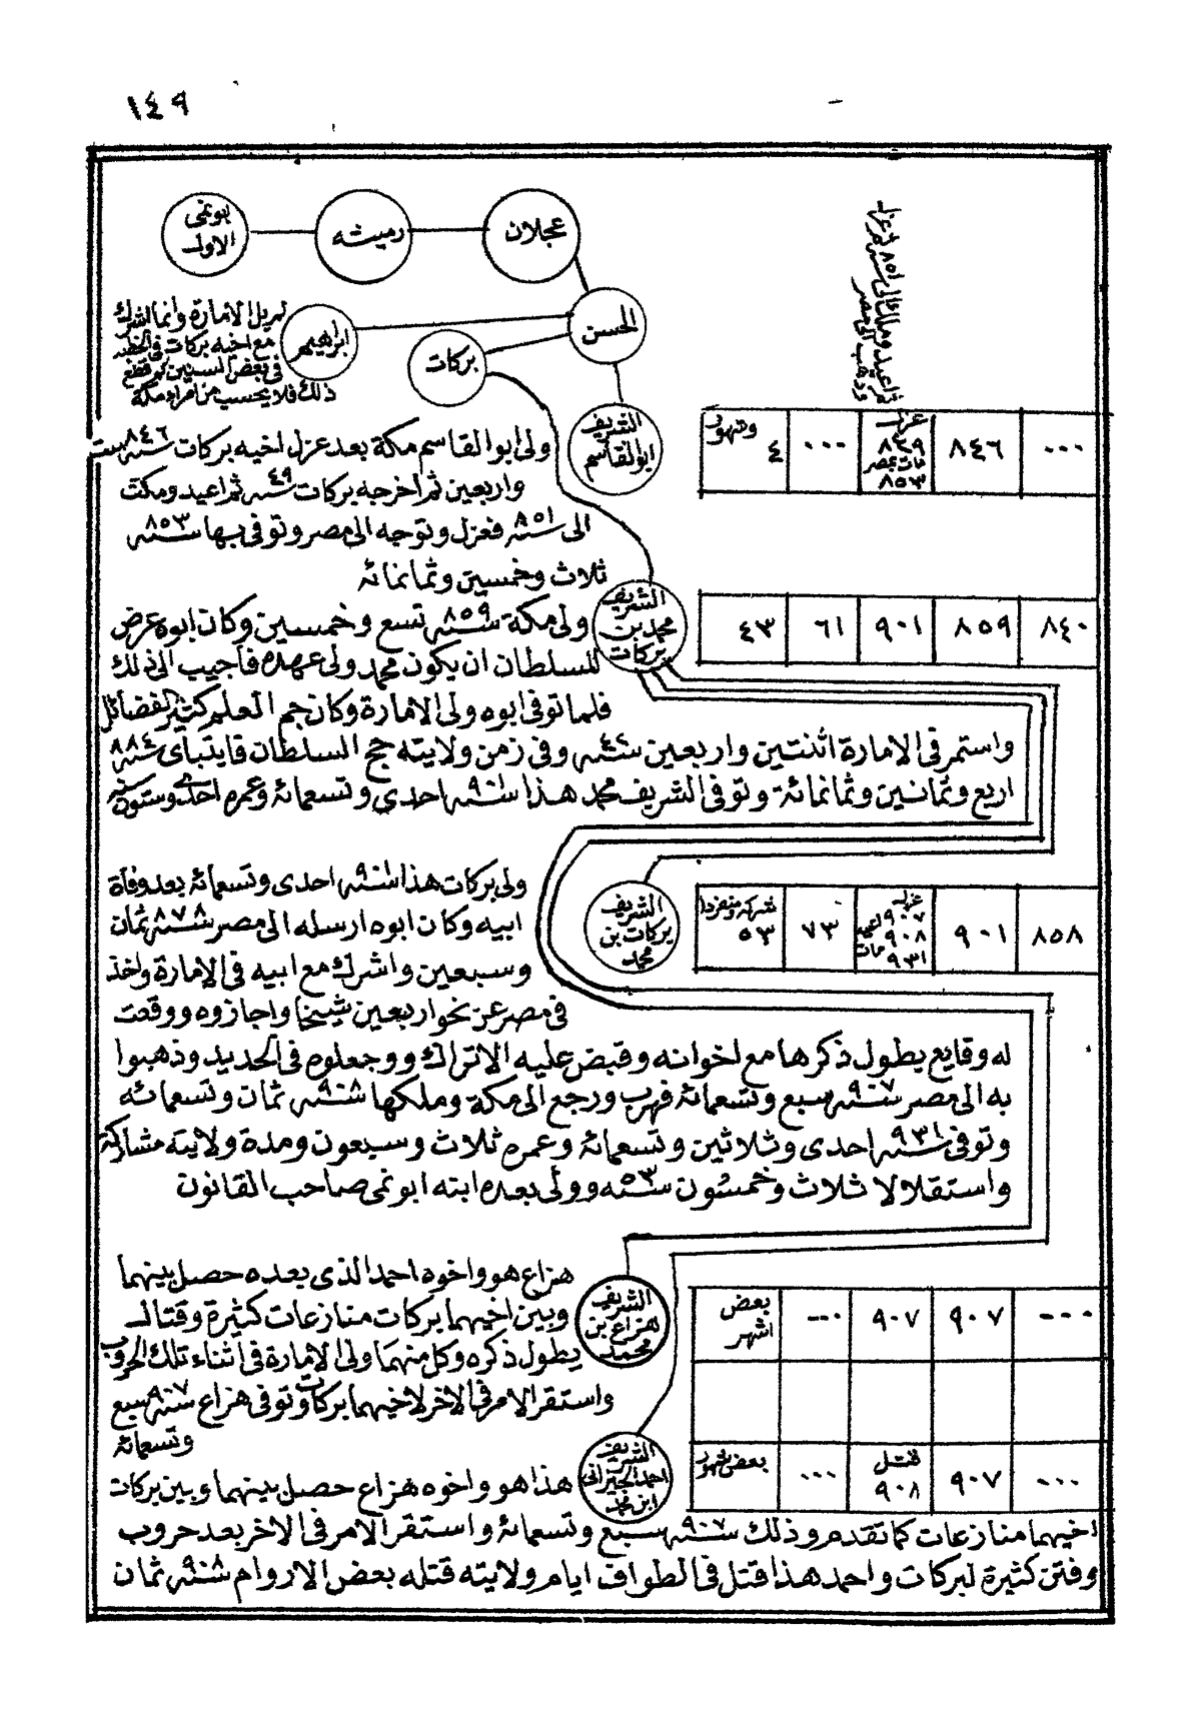 ١٤٩
عجلان
رميثه
بونمى الاول
الحسن
ابراهيم
بركات
لم يل الامارة وانما اشرك
مع اخيه بركات فى الخطبه
فى بعض السنين ثم قطع
ذلك فلا يحسب من امراء مكة
ثم اعيد ومكث الى سنة ٨٥١ ثم عزل
وذهب الى مصر
الشريف ابوالقاسم
... | ٨٤٦ | عزل ٨٤٩ مات بمصر ٨٥٣ | ... | وشهور ٤
ولى ابوالقاسم مكة بعد عزل اخيه بركات سنة ٨٤٦ ست
واربعين ثم اخرجه بركات سنة ٤٩ ثم اعيد ومكث
الى سنة ٨٥١ فعزل وتوجه الى مصر وتوفى بها سنة ٨٥٣
ثلاث وخمسين وثمانمائه
الشريف محمد بن بركات
٨٤٠ | ٨٥٩ | ٩٠١ | ٦١ | ٤٣
ولى مكة سنة ٨٥٩ تسع وخمسين وكان ابوه عرض
للسلطان ان يكون محمد ولى عهده فاجيب الى ذلك
فلما توفى ابوه ولى الامارة وكان جم العلم كثير الفضائل
واستمر فى الامارة اثنتين واربعين سنة ٤٢ وفى زمن ولايته حج السلطان قايتباى سنة ٨٨٤
اربع وثمانين وثمانمائة وتوفى الشريف محمد هذا سنة ٩٠١ احدى وتسعمائة وعمره احدى وستون سنه
الشريف بركات بن محمد
٨٥٨ | ٩٠١ | عزل ٩٠٧ اعيد ٩٠٨ مات ٩٣١ | ٧٣ | شركة ومنفردا ٥٣
ولى بركات هذا سنة ٩٠١ احدى وتسعمائة بعد وفاة
ابيه وكان ابوه ارسله الى مصر سنة ٨٧٨ ثمان
وسبعين واشرك مع ابيه فى الامارة واخذ
فى مصر عن نحو اربعين شيخا واجازوه ووقعت
له وقايع يطول ذكرها مع اخوانه وقبض عليه الاتراك ووجعلوه فى الحديد وذهبوا
به الى مصر سنة ٩٠٧ سبع وتسعمائة فهرب ورجع الى مكة وملكها سنة ٩٠٨ ثمان وتسعمائه
وتوفى سنة ٩٣١ احدى وثلاثين وتسعمائة وعمره ثلاث وسبعون ومدة ولايته مشاركة
واستقلالا ثلاث وخمسون سنة ٥٣ وولى بعده ابنه ابونمى صاحب القانون
الشريف هزاع بن محمد
... | ٩٠٧ | ٩٠٧ | ... | بعض اشهر
هزاع هو واخوه احمد الذى بعده حصل بينهما
وبين اخيهما بركات منازعات كثيرة وقتال
يطول ذكره وكل منهما ولى الامارة فى اثناء تلك الحروب
واستقر الامر فى الاخر لاخيهما بركات وتوفى هزاع سنة ٩٠٧ سبع
وتسعمائة
الشريف احمد الجيزانى ابن محمد
... | ٩٠٧ | قتل ٩٠٨ | ... | بعض شهور
هذا هو واخوه هزاع حصل بينهما وبين بركات
اخيهما منازعات كما تقدم وذلك سنة ٩٠٧ سبع وتسعمائة واستقر الامر فى الاخر بعد حروب
وفتن كثيرة لبركات واحمد هذا قتل فى الطواف ايام ولايته قتله بعض الاروام سنة ٩٠٨ ثمان